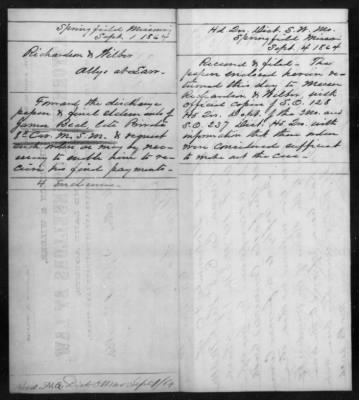 Springfield Missouri
Sept. 1 1864
Richardson & Wilber
Attys at Law.
Forward the discharge
papers & final statements of
James Beal, late Private
8" Cav. M.S.M. & request
such orders as may be neces-
sary to enable him to re-
ceive his final payments.
4 Enclosures.
Hd Qrs. Dist. S.W. Mo.
Springfield Missouri
Sept. 4 1864
Received & filed. The
papers enclosed herein re-
turned this day to Messrs
Richardson & Wilber, with
official copies of S.O. 128
Hd Qrs. Dept. of the Mo. and
S.O. 237 Dist. Hd Qrs. with
information that these orders
were considered sufficient
to make out the case.
Recd. H.Q. Dist S.W. Mo Sept